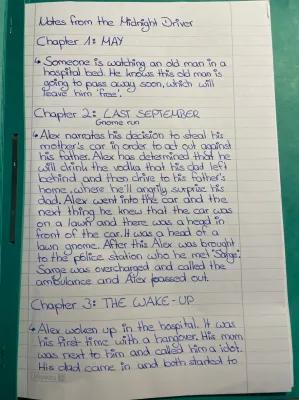 Notes from the Midnight Driver
Chapter 1: MAY
↳ Someone is watching an old man in a
hospital bed. He knows this old man is
going to pass away soon, which will
leave him 'free'.
Chapter 2: LAST SEPTEMBER
Gnome run
↳ Alex narrates his decision to steal his
mother's car in order to act out against
his father. Alex has determined that he
will drink the vodka that his dad left
behind and then drive to his father's
home, where he'll angrily surprise his
dad. Alex went into the car and the
next thing he knew that the car was
on a lawn and there was a head in
front of the car. It was a head of a
lawn gnome. After this Alex was brought
to the police station who he met 'Sarge'.
Sarge was overcharged and called the
ambulance and Alex passed out.
Chapter 3: THE WAKE-UP
↳ Alex woken up in the hospital. It was
his first time with a hangover. His mom
was next to him and called him a idot.
His dad came in and both started to